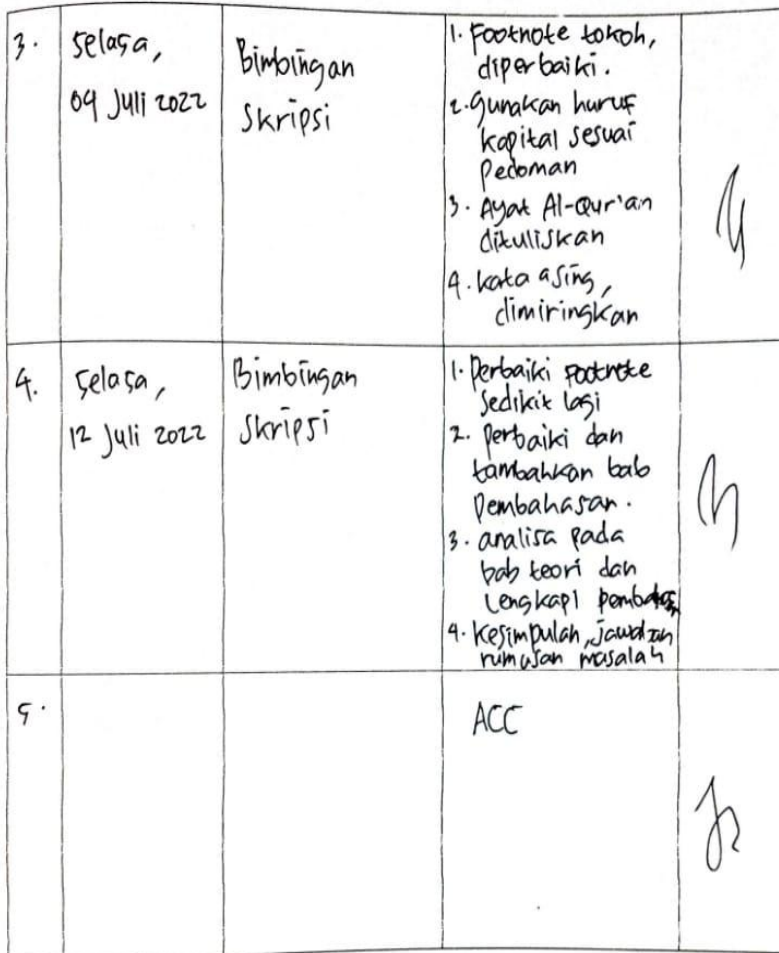 3.
Selasa,
04 Juli 2022
Bimbingan
Skripsi
1. Footnote tokoh,
diperbaiki.
2. Gunakan huruf
kapital sesuai
Pedoman
3. Ayat Al-Qur'an
dituliskan
4. kata asing,
dimiringkan
4.
Selasa,
12 Juli 2022
Bimbingan
Skripsi
1. Perbaiki Footnote
Sedikit lagi
2. Perbaiki dan
tambahkan bab
Pembahasan.
3. analisa pada
bab teori dan
Lengkapi
4. Kesimpulan, jawaban
rumusan masalah
5.
ACC